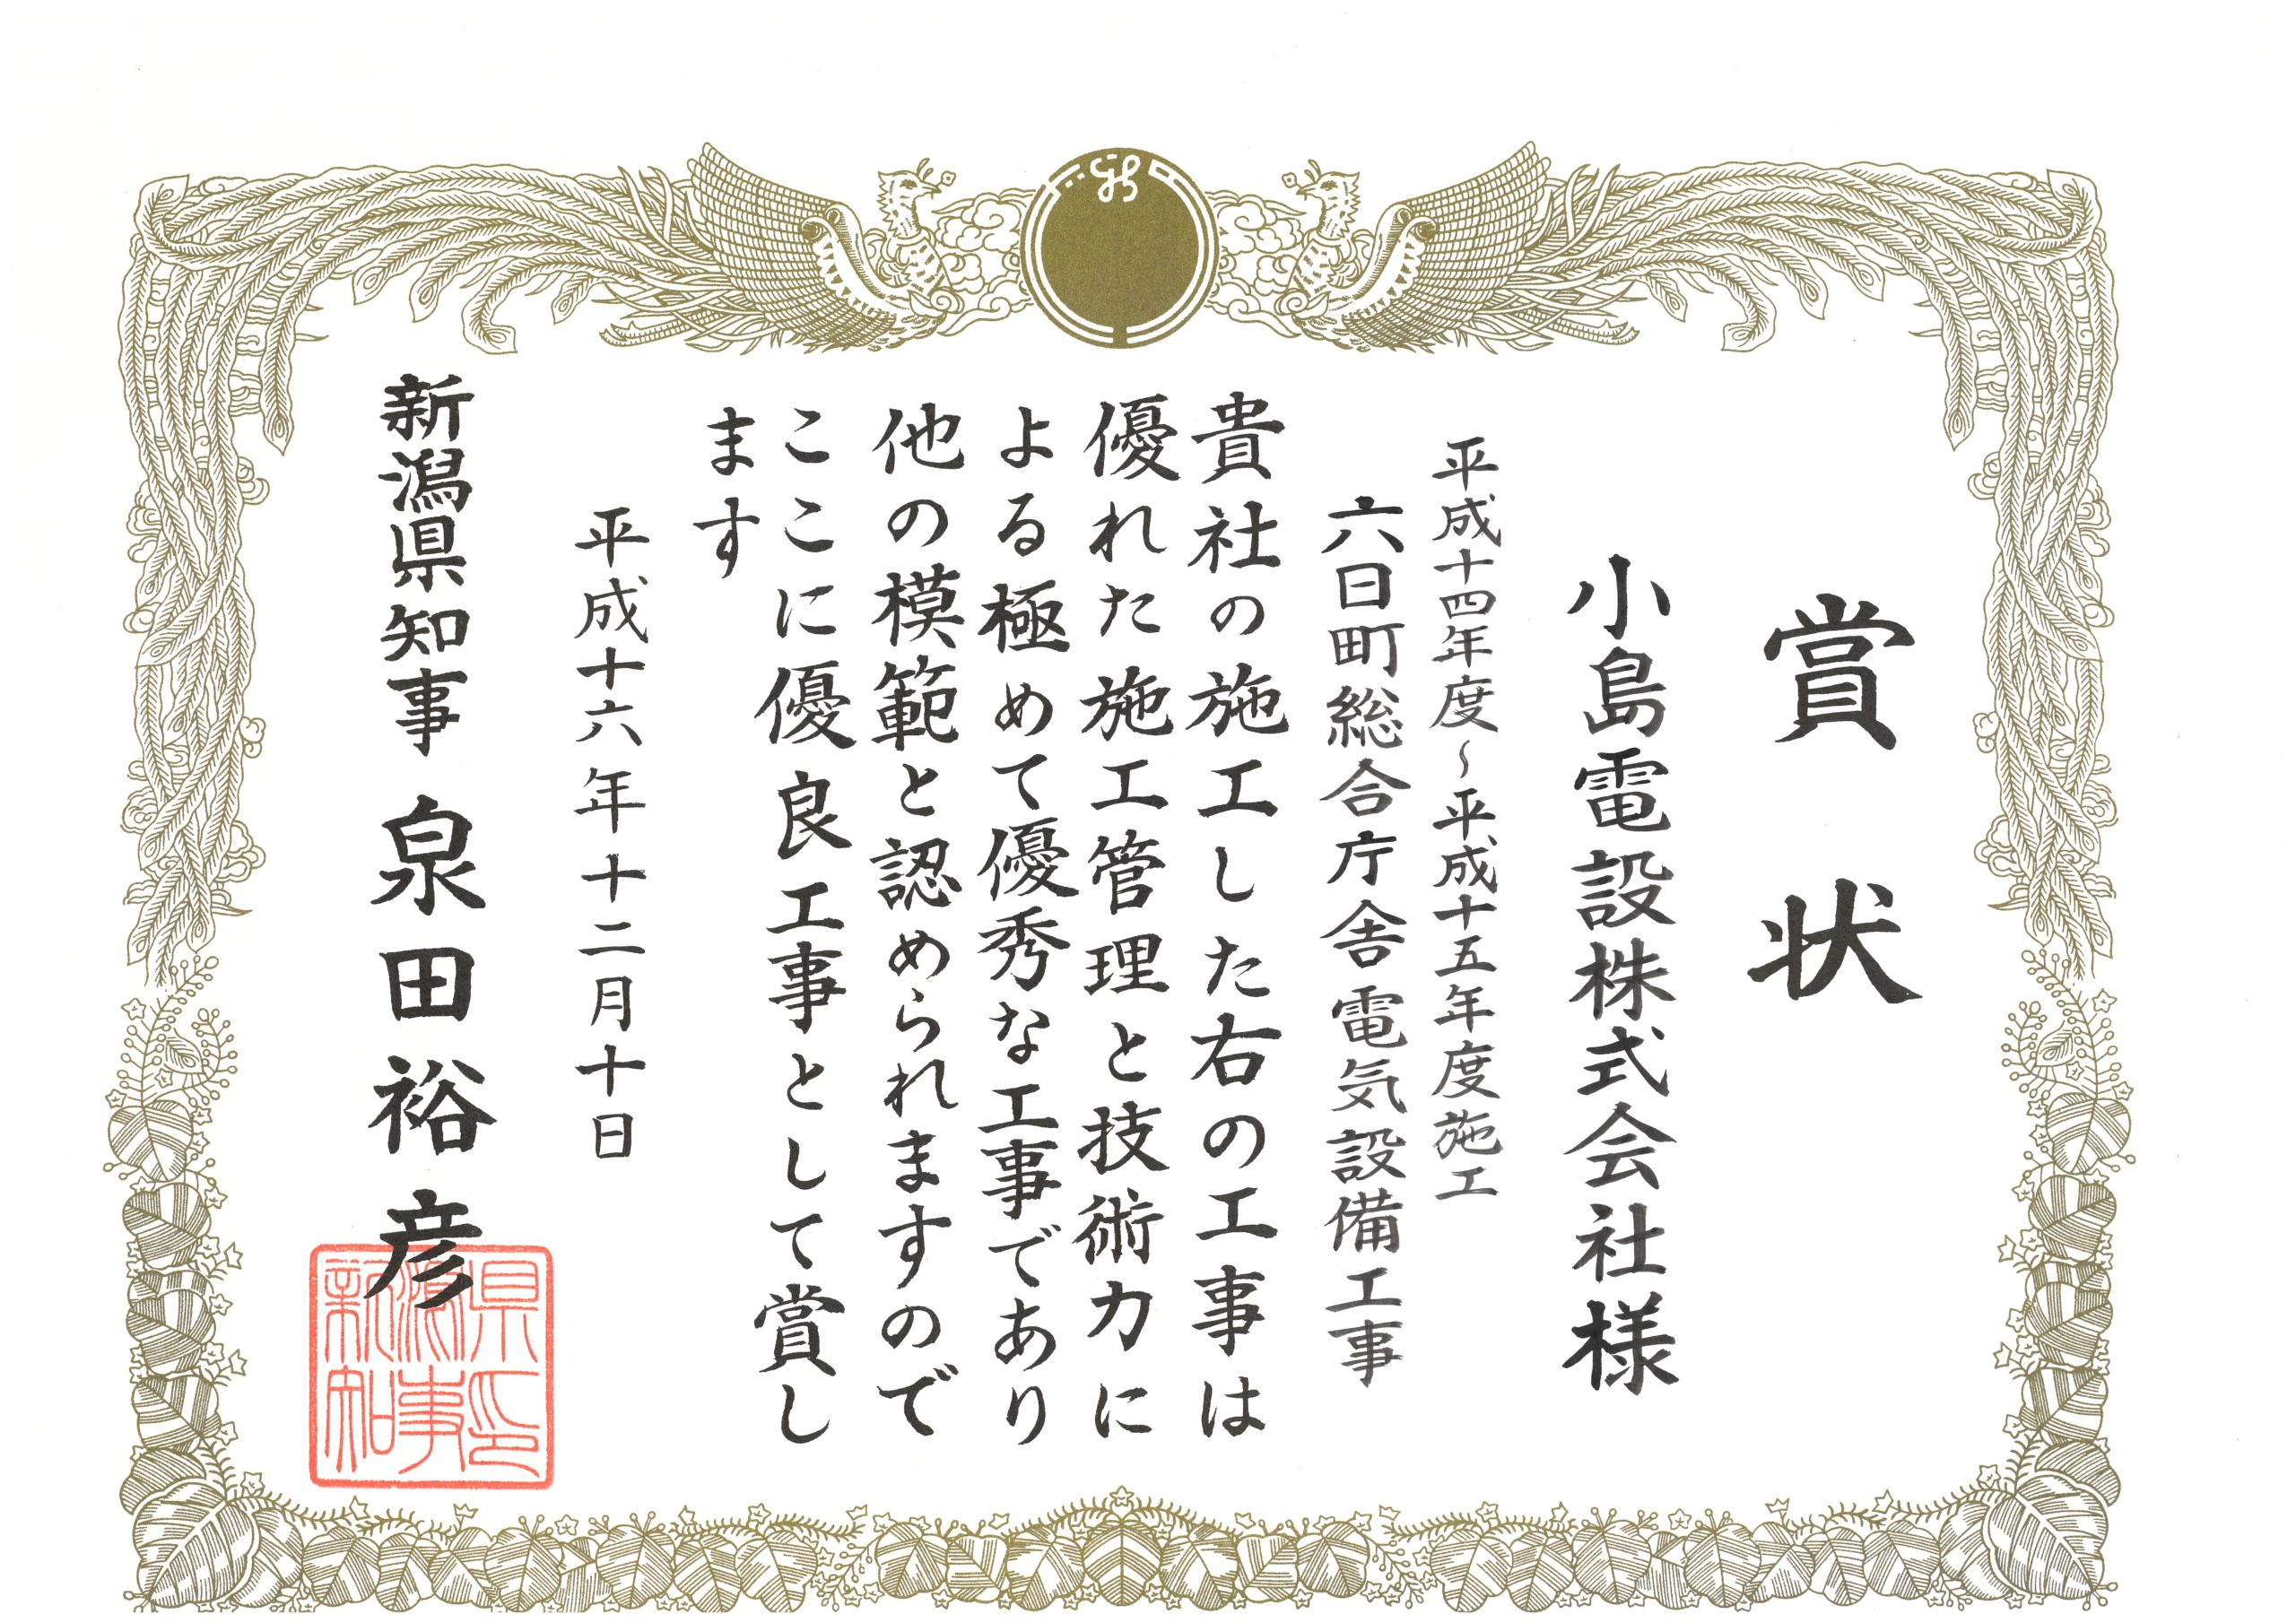 賞状
小島電設株式会社様
平成十四年度～平成十五年度施工
六日町総合庁舎電気設備工事
貴社の施工した右の工事は
優れた施工管理と技術力に
よる極めて優秀な工事であり
他の模範と認められますので
ここに優良工事として賞し
ます
平成十六年十二月十日
新潟県知事 泉田裕彦
新潟県知事印